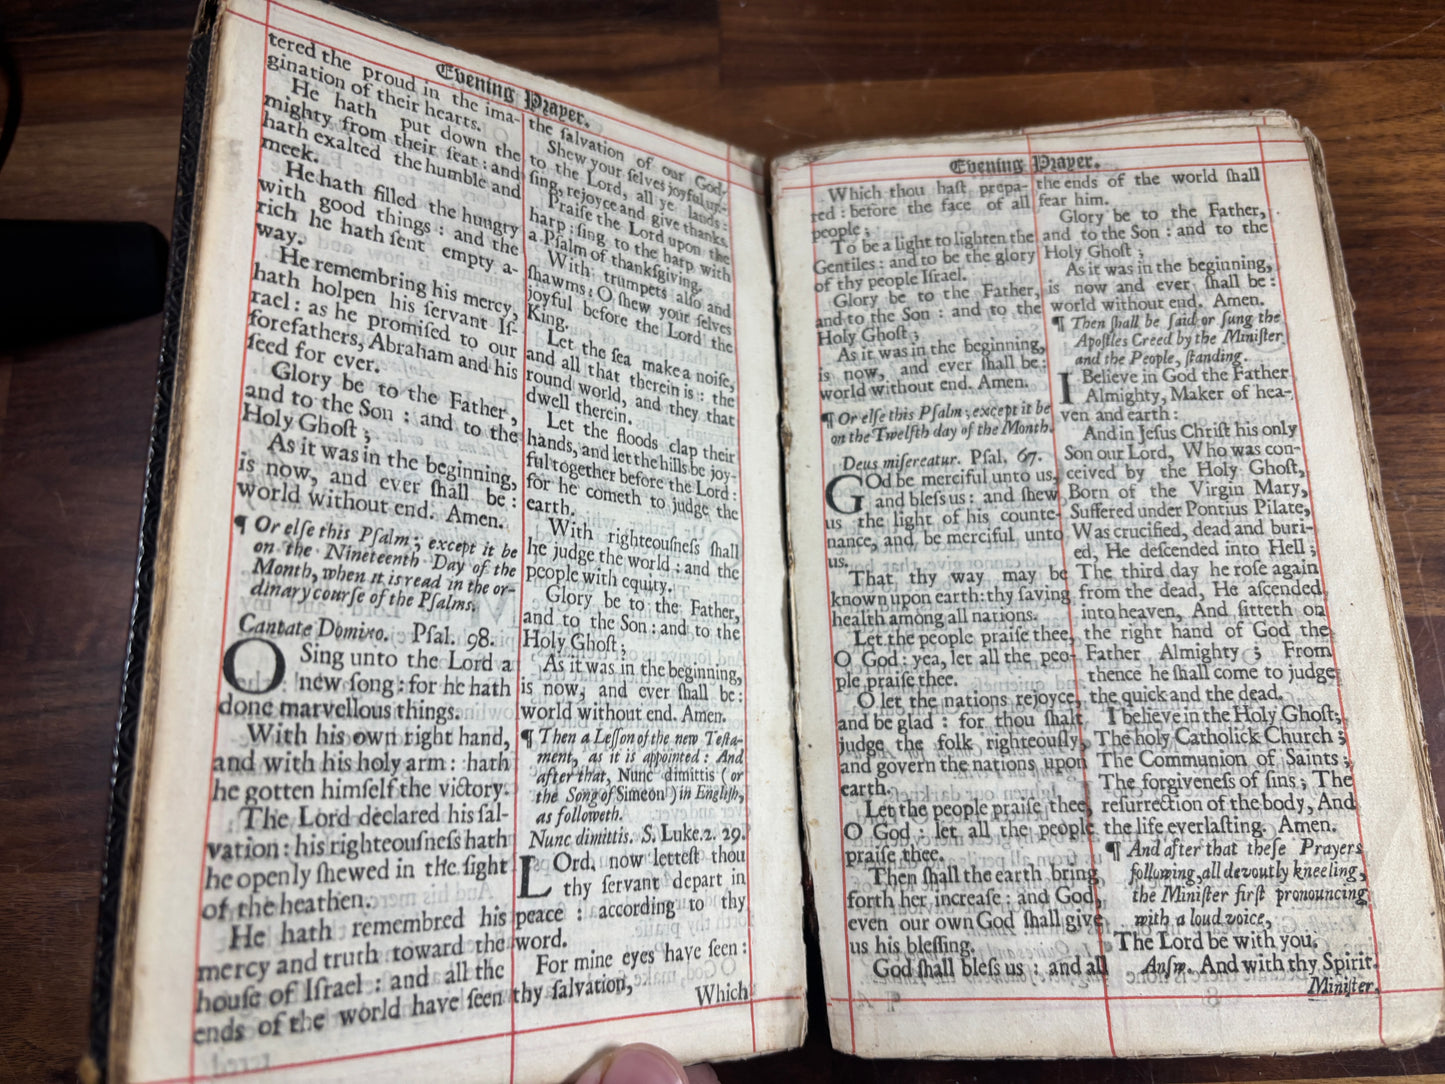 Evening Prayer.
tered the proud in the ima-
gination of their hearts.
He hath put down the
mighty from their ſeat: and
hath exalted the humble and
meek.
He hath filled the hungry
with good things: and the
rich he hath ſent empty a-
way.
He remembring his mercy,
hath holpen his ſervant Iſ-
rael: as he promiſed to our
forefathers, Abraham and his
ſeed for ever.
Glory be to the Father,
and to the Son: and to the
Holy Ghoſt;
As it was in the beginning,
is now, and ever ſhall be:
world without end. Amen.
¶ Or elſe this Pſalm; except it be
on the Nineteenth Day of the
Month, when it is read in the or-
dinary courſe of the Pſalms.
Cantate Domino. Pſal. 98.
O Sing unto the Lord a
new ſong: for he hath
done marvellous things.
With his own right hand,
and with his holy arm: hath
he gotten himſelf the victory.
The Lord declared his ſal-
vation: his righteouſneſs hath
he openly ſhewed in the ſight
of the heathen.
He hath remembred his
mercy and truth toward the
houſe of Iſrael: and all the
ends of the world have ſeen
the ſalvation of our God.
Shew your ſelves joyful un-
to the Lord, all ye lands:
ſing, rejoyce and give thanks.
Praiſe the Lord upon the
harp: ſing to the harp with
a Pſalm of thankſgiving.
With trumpets alſo and
ſhawms: O ſhew your ſelves
joyful before the Lord the
King.
Let the ſea make a noiſe,
and all that therein is: the
round world, and they that
dwell therein.
Let the floods clap their
hands, and let the hills be joy-
ful together before the Lord:
for he cometh to judge the
earth.
With righteouſneſs ſhall
he judge the world: and the
people with equity.
Glory be to the Father,
and to the Son: and to the
Holy Ghoſt;
As it was in the beginning,
is now, and ever ſhall be:
world without end. Amen.
¶ Then a Leſſon of the new Teſta-
ment, as it is appointed: And
after that, Nunc dimittis (or
the Song of Simeon) in Engliſh,
as followeth.
Nunc dimittis. S. Luke. 2. 29.
LOrd, now letteſt thou
thy ſervant depart in
peace: according to thy
word.
For mine eyes have ſeen:
thy ſalvation,
Which
Evening Prayer.
Which thou haſt prepa-
red: before the face of all
people;
To be a light to lighten the
Gentiles: and to be the glory
of thy people Iſrael.
Glory be to the Father,
and to the Son: and to the
Holy Ghoſt;
As it was in the beginning,
is now, and ever ſhall be:
world without end. Amen.
¶ Or elſe this Pſalm; except it be
on the Twelfth day of the Month.
Deus miſereatur. Pſal. 67.
GOd be merciful unto us,
and bleſs us: and ſhew
us the light of his counte-
nance, and be merciful unto
us.
That thy way may be
known upon earth: thy ſaving
health among all nations.
Let the people praiſe thee,
O God: yea, let all the peo-
ple praiſe thee.
O let the nations rejoyce,
and be glad: for thou ſhalt
judge the folk righteouſly,
and govern the nations upon
earth.
Let the people praiſe thee,
O God: let all the people
praiſe thee.
Then ſhall the earth bring
forth her increaſe: and God,
even our own God ſhall give
us his bleſſing.
God ſhall bleſs us: and all
the ends of the world ſhall
fear him.
Glory be to the Father,
and to the Son: and to the
Holy Ghoſt;
As it was in the beginning,
is now and ever ſhall be:
world without end. Amen.
¶ Then ſhall be ſaid or ſung the
Apoſtles Creed by the Miniſter
and the People, ſtanding.
I Believe in God the Father
Almighty, Maker of hea-
ven and earth:
And in Jeſus Chriſt his only
Son our Lord, Who was con-
ceived by the Holy Ghoſt,
Born of the Virgin Mary,
Suffered under Pontius Pilate,
Was crucified, dead and buri-
ed, He deſcended into Hell;
The third day he roſe again
from the dead, He aſcended
into heaven, And ſitteth on
the right hand of God the
Father Almighty; From
thence he ſhall come to judge
the quick and the dead.
I believe in the Holy Ghoſt;
The holy Catholick Church;
The Communion of Saints;
The forgiveneſs of ſins; The
reſurrection of the body, And
the life everlaſting. Amen.
¶ And after that theſe Prayers
following, all devoutly kneeling,
the Miniſter firſt pronouncing
with a loud voice,
The Lord be with you.
Anſw. And with thy Spirit.
Miniſter.